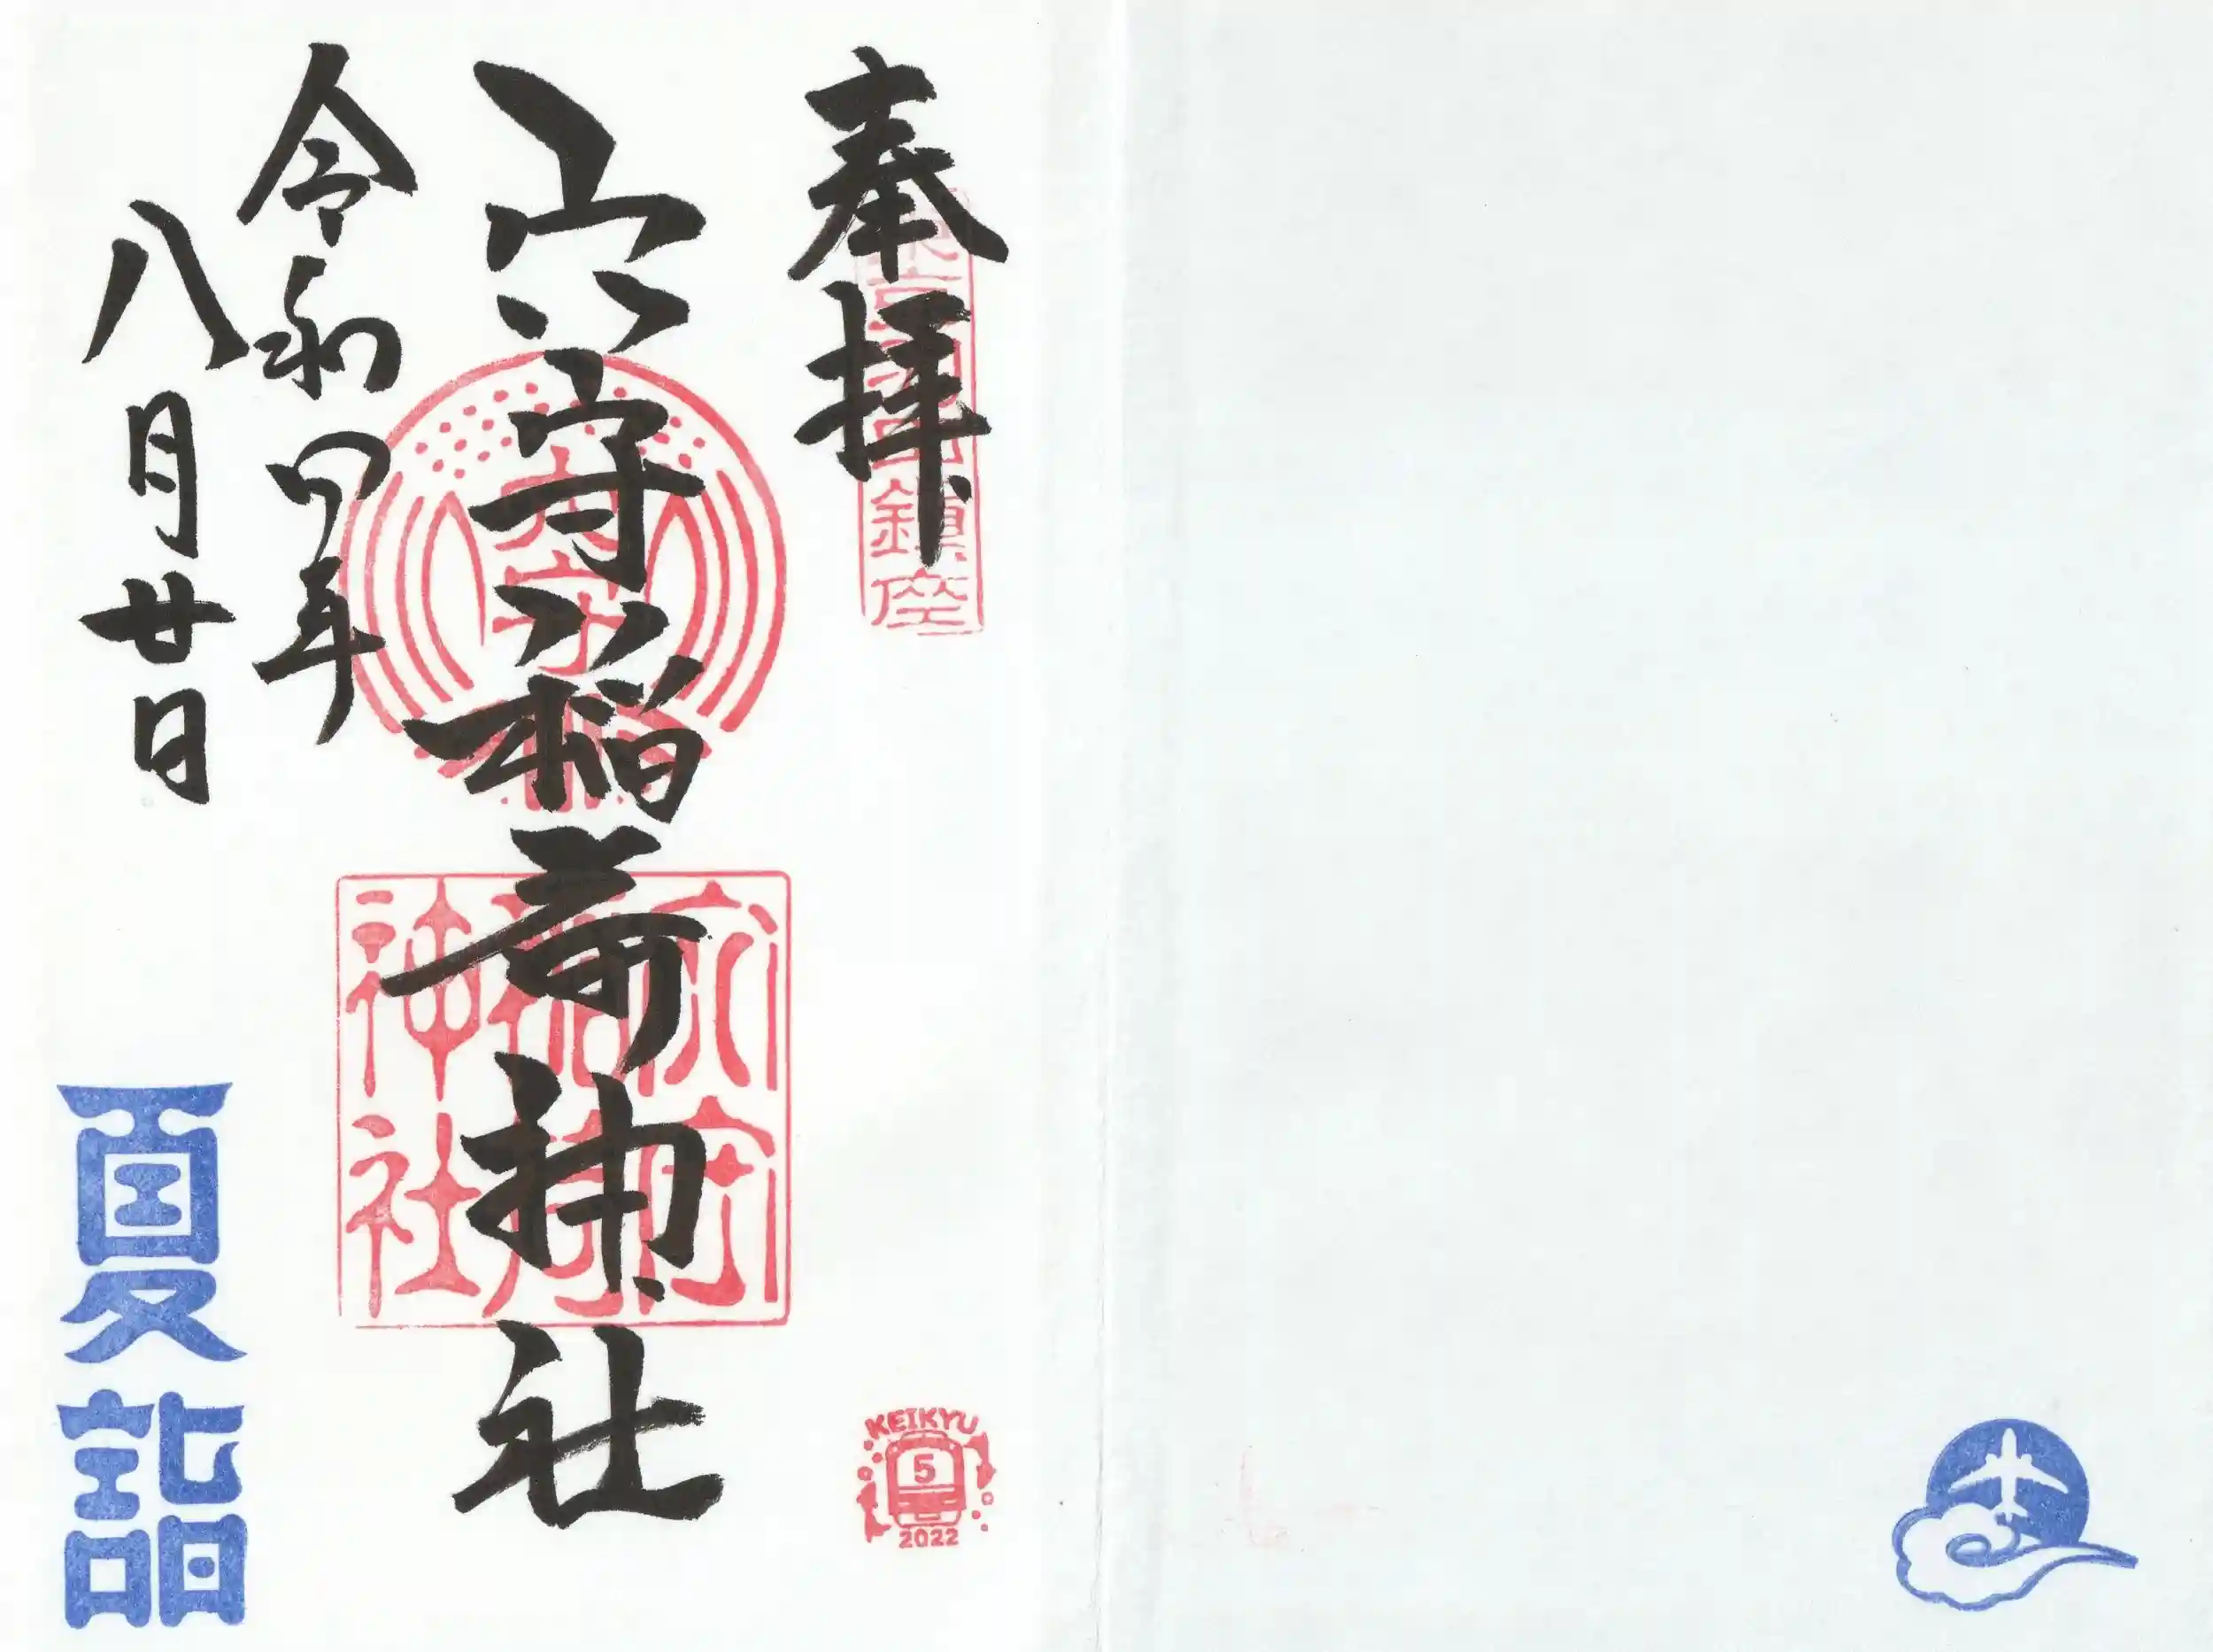 奉拝
穴守稲荷神社
令和四年
八月廿日
鎮座
穴守
稲荷
神社
夏詣
KEIKYU
5
2022